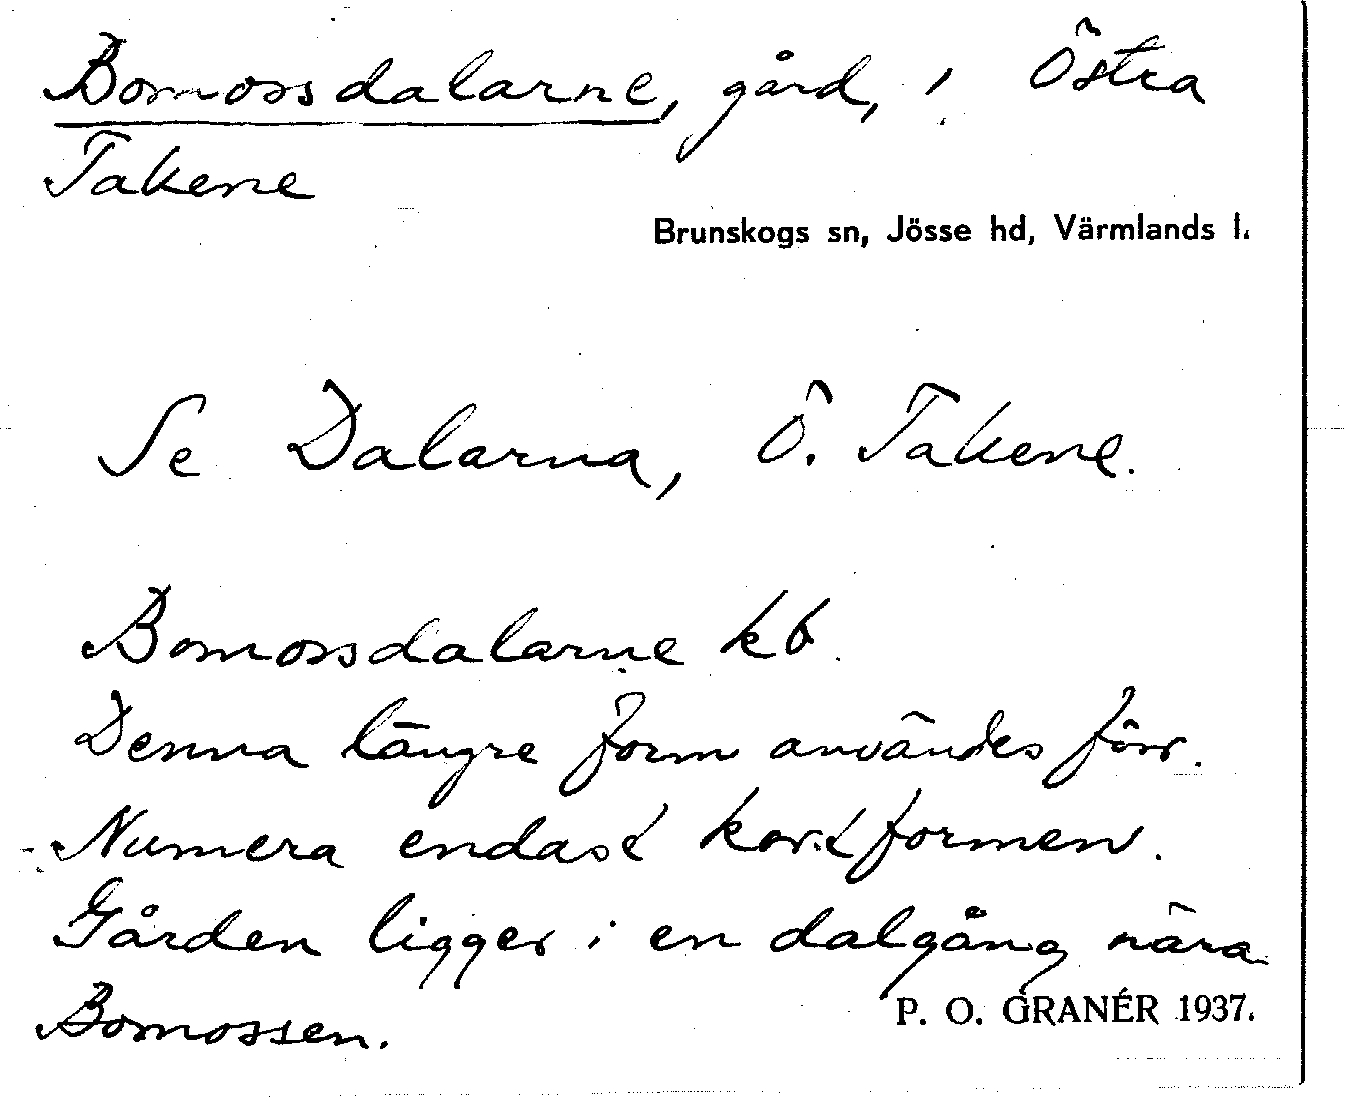 Bomossdalarne, gård, i Östra
Takene
Brunskogs sn, Jösse hd, Värmlands l.
Se Dalarna, Ö. Takene.
Bomossdalarne kb
Denna längre form användes förr.
Numera endast kortformen.
Gården ligger i en dalgång nära
Bomossen.
P. O. GRANÉR 1937.